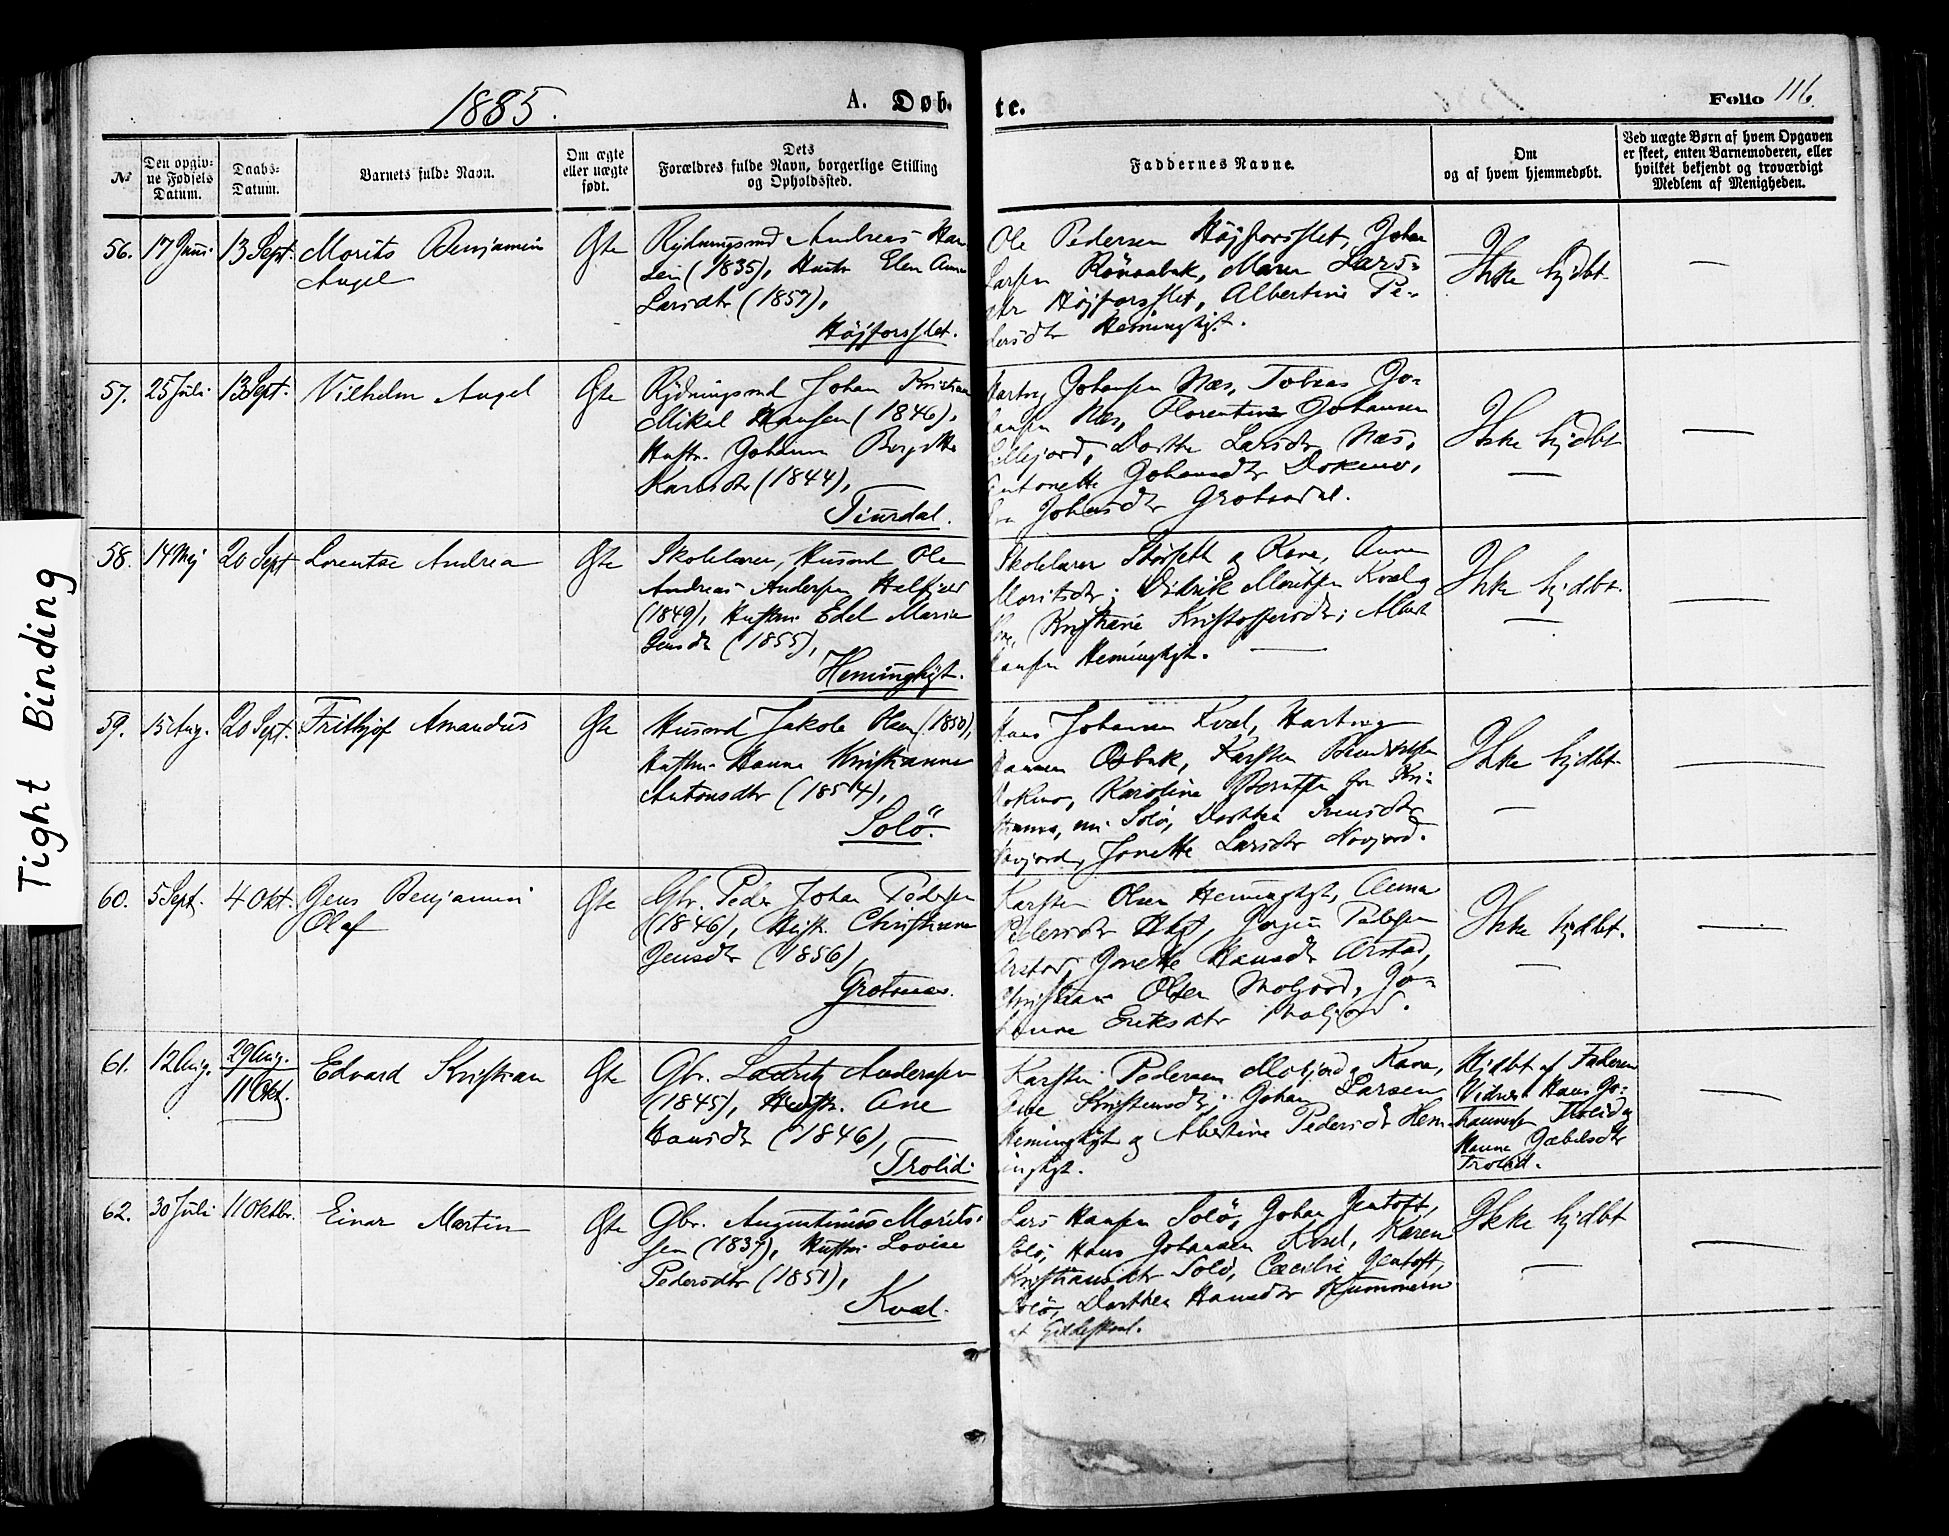 1885.
A. Døb-
te.
Folio 116.
Tight Binding
№
Den opgiv-
ne Fødsels
Datum.
Daabs-
Datum.
Barnets fulde Navn.
Om ægte
eller uægte
født.
Dets
Forældres fulde Navn, borgerlige Stilling
og Opholdssted.
Faddernes Navne.
Om
og af hvem hjemmedøbt.
Ved uægte Børn af hvem Opgaven
er skeet, enten Barnemoderen, eller
hvilket bekjendt og troværdigt
Medlem af Menigheden.
56. 17 Juni 13 Sept. Morits Benjamin
Angel
Ægte
Rydningsmd Andreas Han
sen (1835), Hustr Elen Anna
Larsdtr (1857),
Højforsslet.
Ole Pedersen Højforsslet, Johan
Larsen Maren Lars-
dtr Højforsslet, Albertine Pe-
dersdtr Heminghyt.
Ikke hjdbt.
57. 25 Juli 13 Sept. Vilhelm Angel
Ægte
Rydningsmd Johan Kristian
Mikal Hansen (1846),
Hustr. Johanna Bergitte
Karlsdtr (1844),
Hartvig Johansen Næs, Tobias Jo-
hansen Næs, Florentine Johansen
Dorthe Larsdtr Næs,
Antonette Johansdtr
Johansdtr
Ikke hjdbt
58. 14 Mej 20 Sept Lorentse Andrea
Ægte
Skolelærer, Husmd Ole
Andreas Andersen
(1849), Hustru Edel Marie
Jensdtr (1855),
Heminghyt.
Skolelærer Størseth og Kone, Anne
Moritsdtr; Didrik Moritsen Kval og
Kone, Kristoffersdtr; Albert
Hansen Heminghyt.
Ikke hjdbt.
59. 15 Aug. 20 Sept. Frithjof Amandus
Ægte
Husmd Jakob Olsen (1850),
Hustru Hanna Kristianna
Antonsdtr (1854),
Solö.
Hans Johansen Kval, Hartvig
Hansen Osbak, Karsten
Karoline Berntsen fra Kri-
Solö, Dorthea Svensdtr
Novjord, Jonette Larsdtr Novjord.
Ikke hjdbt.
60. 5 Sept. 4 Okt. Jens Benjamin
Olaf
Ægte
Gbr. Peder Johan Pedersen
(1846), Hustr. Christianna
Jensdtr (1856),
Grotnæs.
Karsten Olsen Heminghyt, Anna
Pedersdtr
Arstad, Jonette Hansdtr Arstad,
Olsen Jo-
hanna Eriksdtr
Ikke hjdbt.
61. 12 Aug. 29 Aug.
11 Okt.
Edvard Kristian
Ægte
Gbr. Laurits Andersen
(1845), Hustr. Ane
Hansdtr (1846),
Trolid.
Karsten Pedersen og Kone,
Ane Johan Larsen
Heminghyt og Albertine Pedersdtr Hem-
inghyt.
Hjdbt af Faderen
Vidner: Hans Jo-
hannesen Trolid og
Hanna Gabelsdtr
Trolid.
62. 30 Juli 11 Oktbr. Einar Martin
Ægte
Gbr. Augustinus Morits-
sen (1837), Hustru Lovise
Pedersdtr (1851),
Kval.
Lars Hansen Solö, Johan Jentoft,
Solö, Hans Johansen Kval, Karen
Kristiansdtr Solö, Cæcilie Jentoft,
Solö, Dorthea Hansdtr
Gildeskaal.
Ikke hjdbt